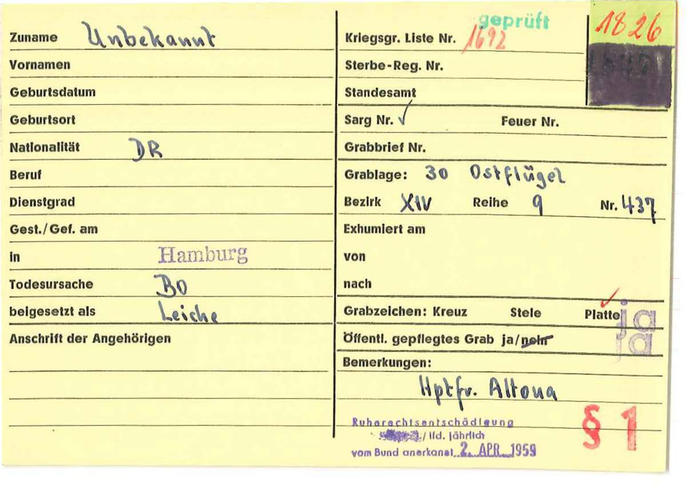 Zuname Unbekannt
Vornamen
Geburtsdatum
Geburtsort
Nationalität DR
Beruf
Dienstgrad
Gest./Gef. am
in Hamburg
Todesursache BO
beigesetzt als Leiche
Anschrift der Angehörigen
geprüft
1826
Kriegsgr. Liste Nr. 1692
Sterbe-Reg. Nr.
Standesamt
Sarg Nr. √ Feuer Nr.
Grabbrief Nr.
Grablage: 30 Ostflügel
Bezirk XIV Reihe 9 Nr. 437
Exhumiert am
von
nach
Grabzeichen: Kreuz Stele Platte ja
Öffentl. gepflegtes Grab ja/nein ja
Bemerkungen:
Hptfr. Altona
Ruherechtsentschädigung
/ lfd. jährlich
vom Bund anerkannt 2. APR. 1959
§ 1